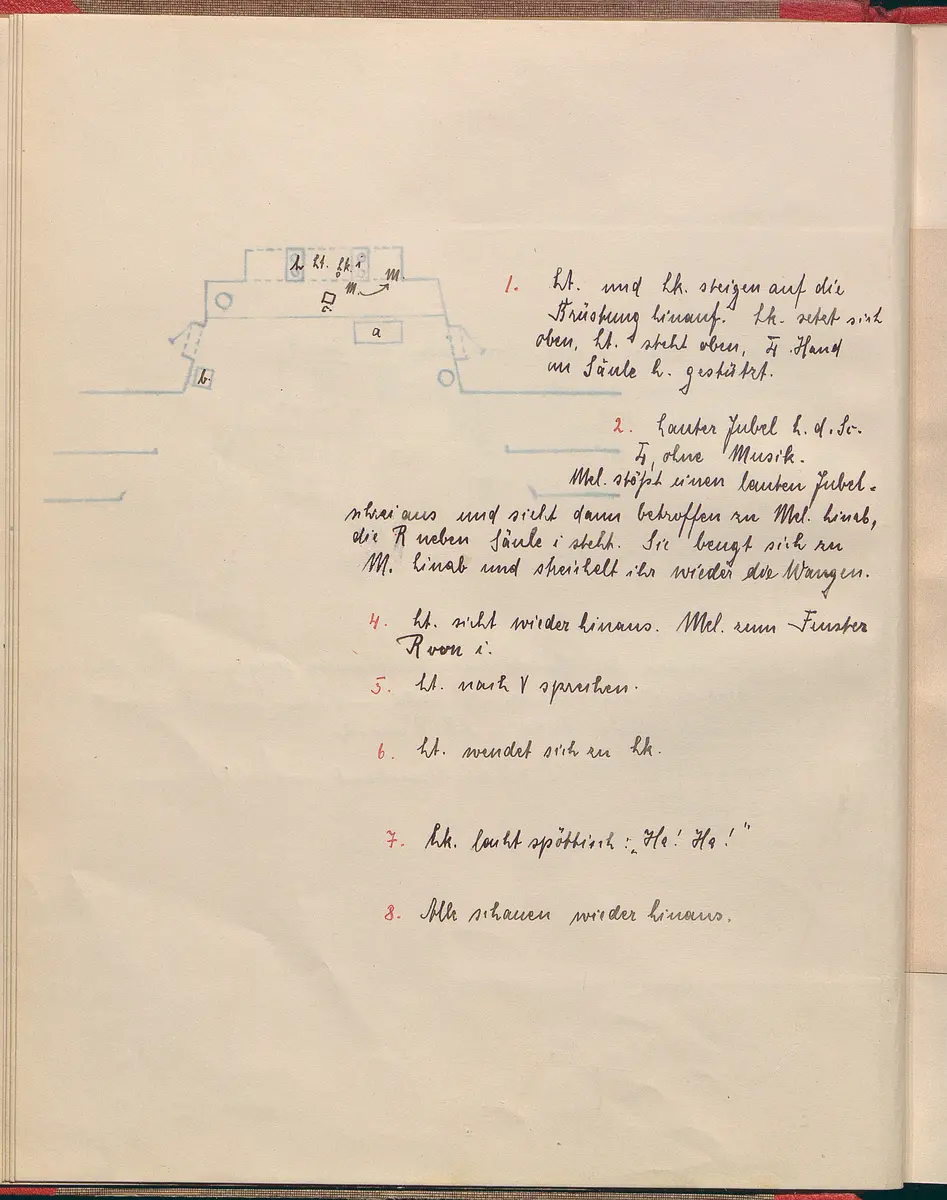 h ht. hk. i M.
M.
a
b.
1. ht. und hk. steigen auf die
Brüstung hinauf. hk. setzt sich
oben, ht. steht oben, Hand
an Säule h. gestützt.
2. Lauter Jubel h. d. Sc.
ohne Musik.
Mel. stößt einen lauten Jubel-
schrei aus und sieht dann betroffen zu Mel. hinab,
die R neben Säule i steht. Sie beugt sich zu
M. hinab und streichelt ihr wieder die Wangen.
4. ht. sieht wieder hinaus. Mel. zum Fenster
R von i.
5. ht. nach V sprechen.
6. ht. wendet sich zu hk.
7. hk. lacht spöttisch: „Ha! Ha!"
8. Alle schauen wieder hinaus.